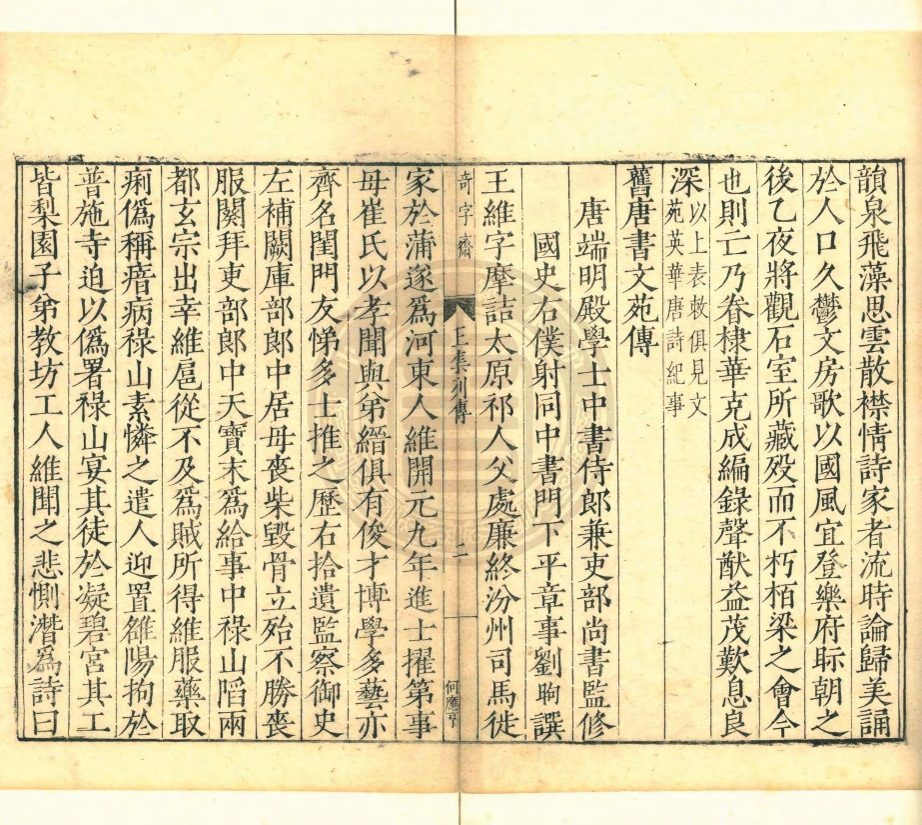 韻泉飛藻思雲散襟情詩家者流時論歸美誦
於人口久鬱文房歌以國風宜登樂府眎朝之
後乙夜將觀石室所藏歿而不朽栢梁之會今
也則亡乃眷棣華克成編錄聲猷益茂歎息良
深以上表敕俱見文
苑英華唐詩紀事
舊唐書文苑傳
唐端明殿學士中書侍郎兼吏部尚書監修
國史右僕射同中書門下平章事劉昫譔
王維字摩詰太原祁人父處廉終汾州司馬徙
奇字齋
王集列傳
二
何應亨
家於蒲遂爲河東人維開元九年進士擢第事
母崔氏以孝聞與弟縉俱有俊才博學多藝亦
齊名閨門友悌多士推之歷右拾遺監察御史
左補闕庫部郎中居母喪柴毀骨立殆不勝喪
服闋拜吏部郎中天寶末爲給事中祿山陷兩
都玄宗出幸維扈從不及爲賊所得維服藥取
痢僞稱瘖病祿山素憐之遣人迎置雒陽拘於
普施寺迫以僞署祿山宴其徒於凝碧宮其工
皆梨園子弟教坊工人維聞之悲惻潛爲詩曰